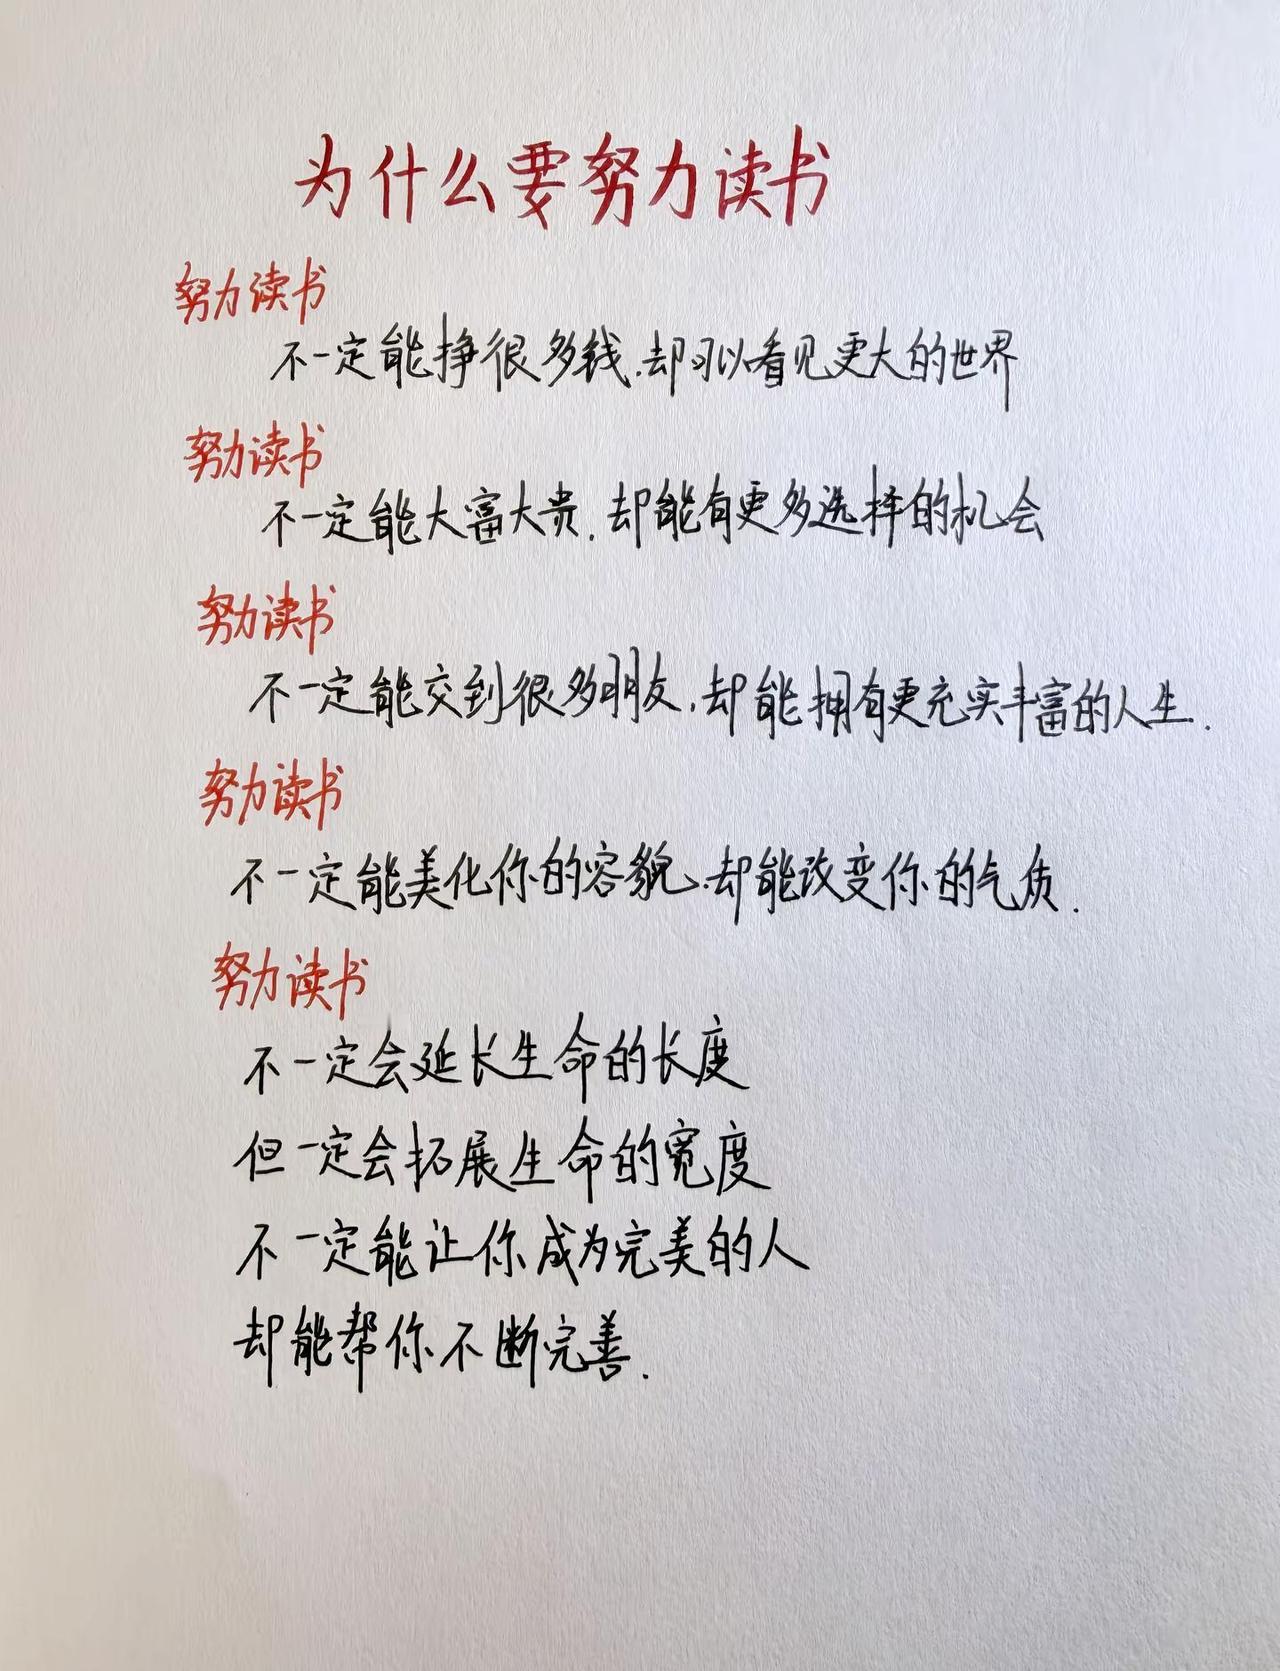 为什么要努力读书
努力读书
不一定能挣很多钱.却可以看见更大的世界
努力读书
不一定能大富大贵.却能有更多选择的机会
努力读书
不一定能交到很多朋友.却能拥有更充实丰富的人生.
努力读书
不一定能美化你的容貌.却能改变你的气质.
努力读书
不一定会延长生命的长度
但一定会拓展生命的宽度
不一定能让你成为完美的人
却能帮你不断完善.